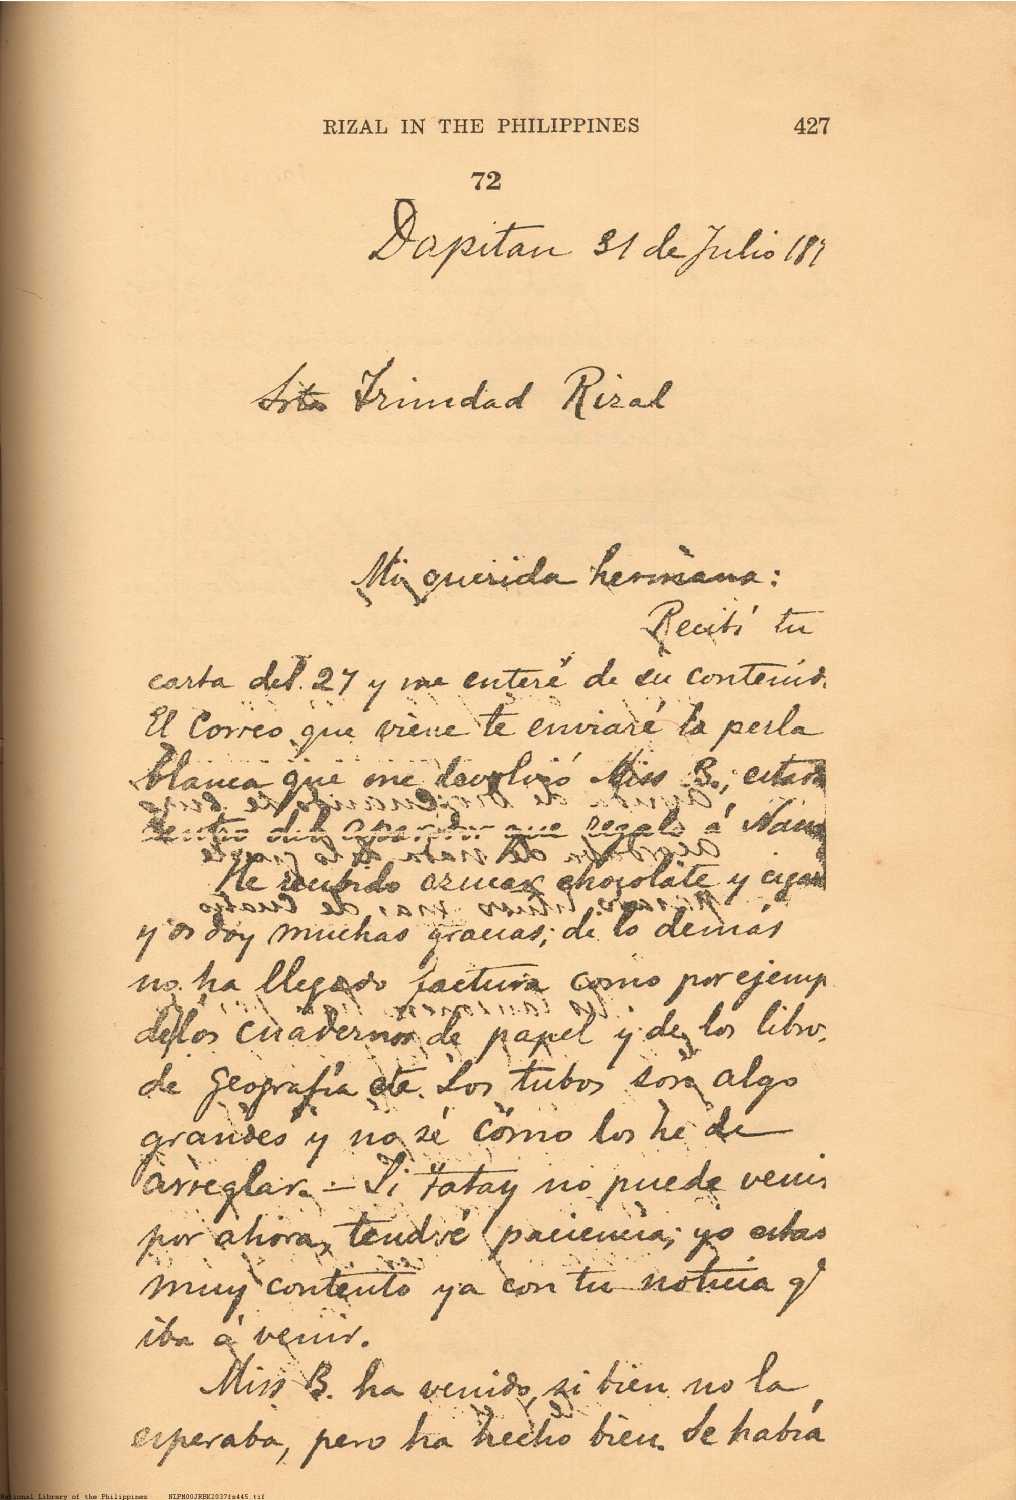 RIZAL IN THE PHILIPPINES 427
72
Dapitan 31 de Julio 189
Srta Trinidad Rizal
Mi querida hermana:
Recibí tu
carta del 27 y me enteré de su contenid
El Correo que viene te enviaré la perla
blanca que me devolvió Miss B.; estará
dentro del aparador que regalo á Nan
He recibido azucar chocolate y cigar
y os doy muchas gracias; de lo demás
no ha llegado factura como por ejemp
de los cuadernos de papel y de los libro
de geografía ete. Los tubos son algo
grandes y no sé cómo los he de
arreglar. — Si Tatay no puede venir
por ahora, tendré paciencia; yo estab
muy contento ya con tu noticia q'
iba á venir.
Miss B. ha venido, si bien no la
esperaba, pero ha hecho bien. Se había
National Library of the Philippines NLPM00JRBK2037fs445.tif